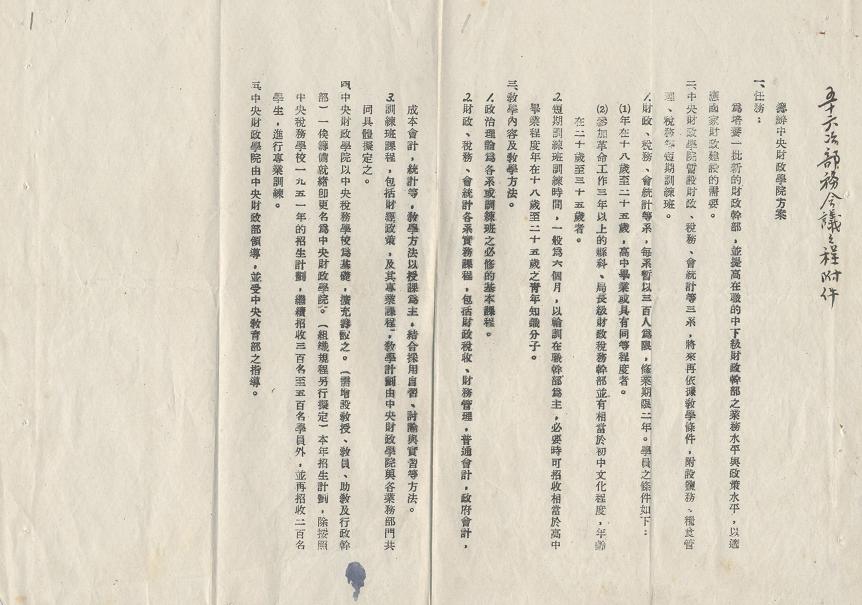 五十六次部務會議議程附件
籌辦中央財政學院方案
一、任務：
爲培養一批新的財政幹部，並提高在職的中下級財政幹部之業務水平與政策水平，以適
應國家財政建設的需要。
二、中央財政學院暫設財政、稅務、會統計等三系，將來再依據教學條件，附設鹽務、糧食管
理、稅務等短期訓練班。
1.財政、稅務、會統計等系，每系暫以三百人爲限，修業期限二年。學員之條件如下：
(1)年在十八歲至二十五歲，高中畢業或具有同等程度者。
(2)參加革命工作三年以上的縣科、局長級財政稅務幹部並有相當於初中文化程度，年齡
在二十歲至三十五歲者。
2.短期訓練班訓練時間，一般爲六個月，以輪訓在職幹部爲主，必要時可招收相當於高中
畢業程度年在十八歲至二十五歲之青年知識分子。
三、教學內容及教學方法。
1.政治理論爲各系或訓練班之必修的基本課程。
2.財政、稅務、會統計各系實務課程，包括財政稅收、財務管理，普通會計，政府會計，
成本會計，統計等，教學方法以授課爲主，結合採用自習、討論與實習等方法。
3.訓練班課程，包括財經政策，及其專業課程，教學計劃由中央財政學院與各業務部門共
同具體擬定之。
四、中央財政學院以中央稅務學校爲基礎，擴充籌設之。（需增設教授、教員、助教及行政幹
部）一俟籌備就緒即更名爲中央財政學院。（組織規程另行擬定）本年招生計劃，除按照
中央稅務學校一九五一年的招生計劃，繼續招收三百名至五百名學員外，並再招收二百名
學生，進行專業訓練。
五、中央財政學院由中央財政部領導，並受中央教育部之指導。
1